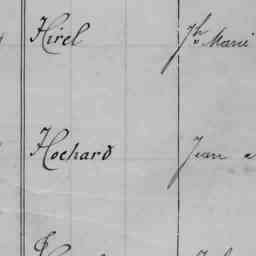 Hirel Jh Marie
Hochard Jean